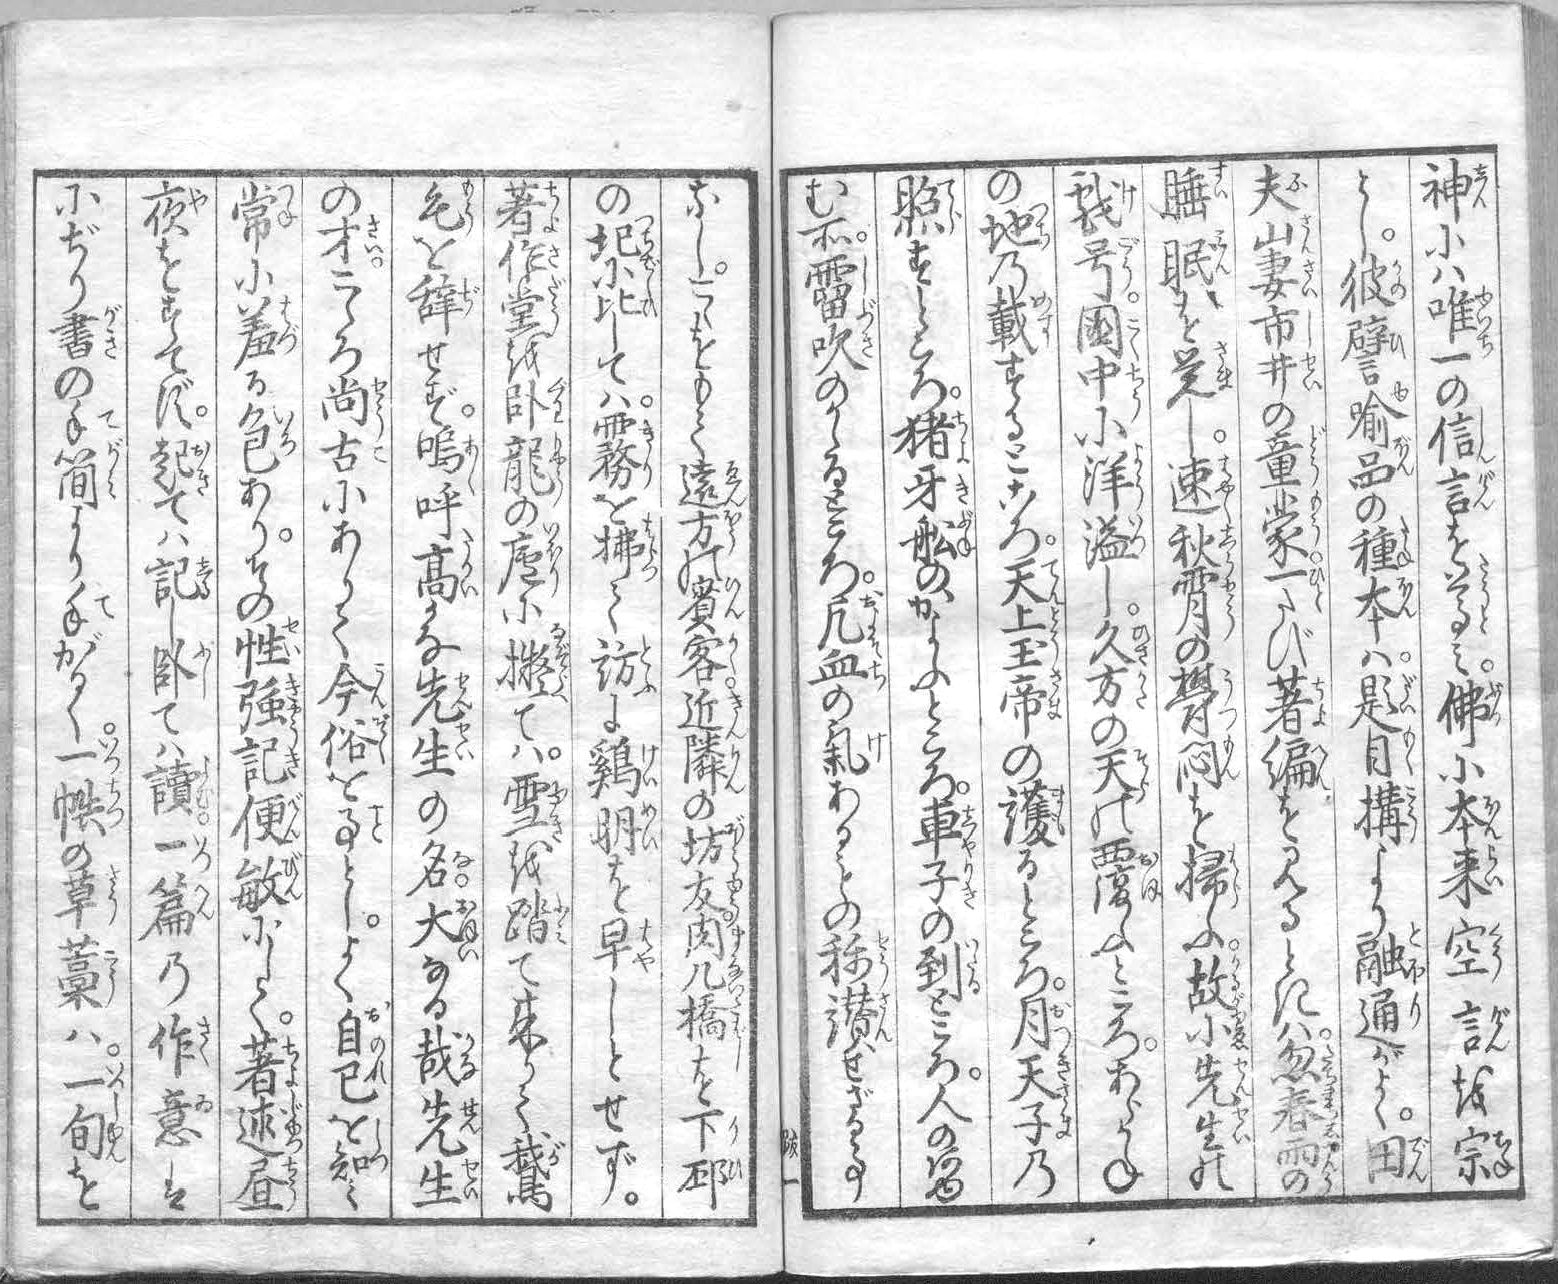 神小ハ唯一の信言をたうとみ。佛小本来空言を宗
とし。彼譬喩品の種本ハ。題目搆より融通がよく。田
夫山妻市井の童蒙一たび著編を見るときハ。忽春雨の
睡眠を覚し。速秋霄の欝悶を掃ふ。故小先生の
戯号國中小洋溢し。久方の天の覆ふところ。あらかね
の地乃載するところ。天上玉帝の護るところ。月天子乃
照すところ。猪牙舩のかよふところ。車子の到ところ。人の住
む所。霤吹のかゝるところ。凡血の氣あるもの称讃せざる事
なし。こゝをもて遠方の賓客。近隣の坊友。肉几橋を下邳
の圯小比してハ。霧を拂て訪ふよ鷄明を早しとせず。
著作堂を卧龍の廬小擬てハ。雪を踏て来りて鵞
毛を辞せず。嗚呼高かな先生の名。大なる哉先生
の才。こゝろ尚古小ありて今俗を事とし。よく自己を知て
常小羞る色あり。その性強記便敏にして。著述昼
夜をすてず。起てハ記し卧てハ讀。一篇乃作意は
小ぢり書の手簡より手がるく。一帙の草藁ハ。一旬を
跋 一